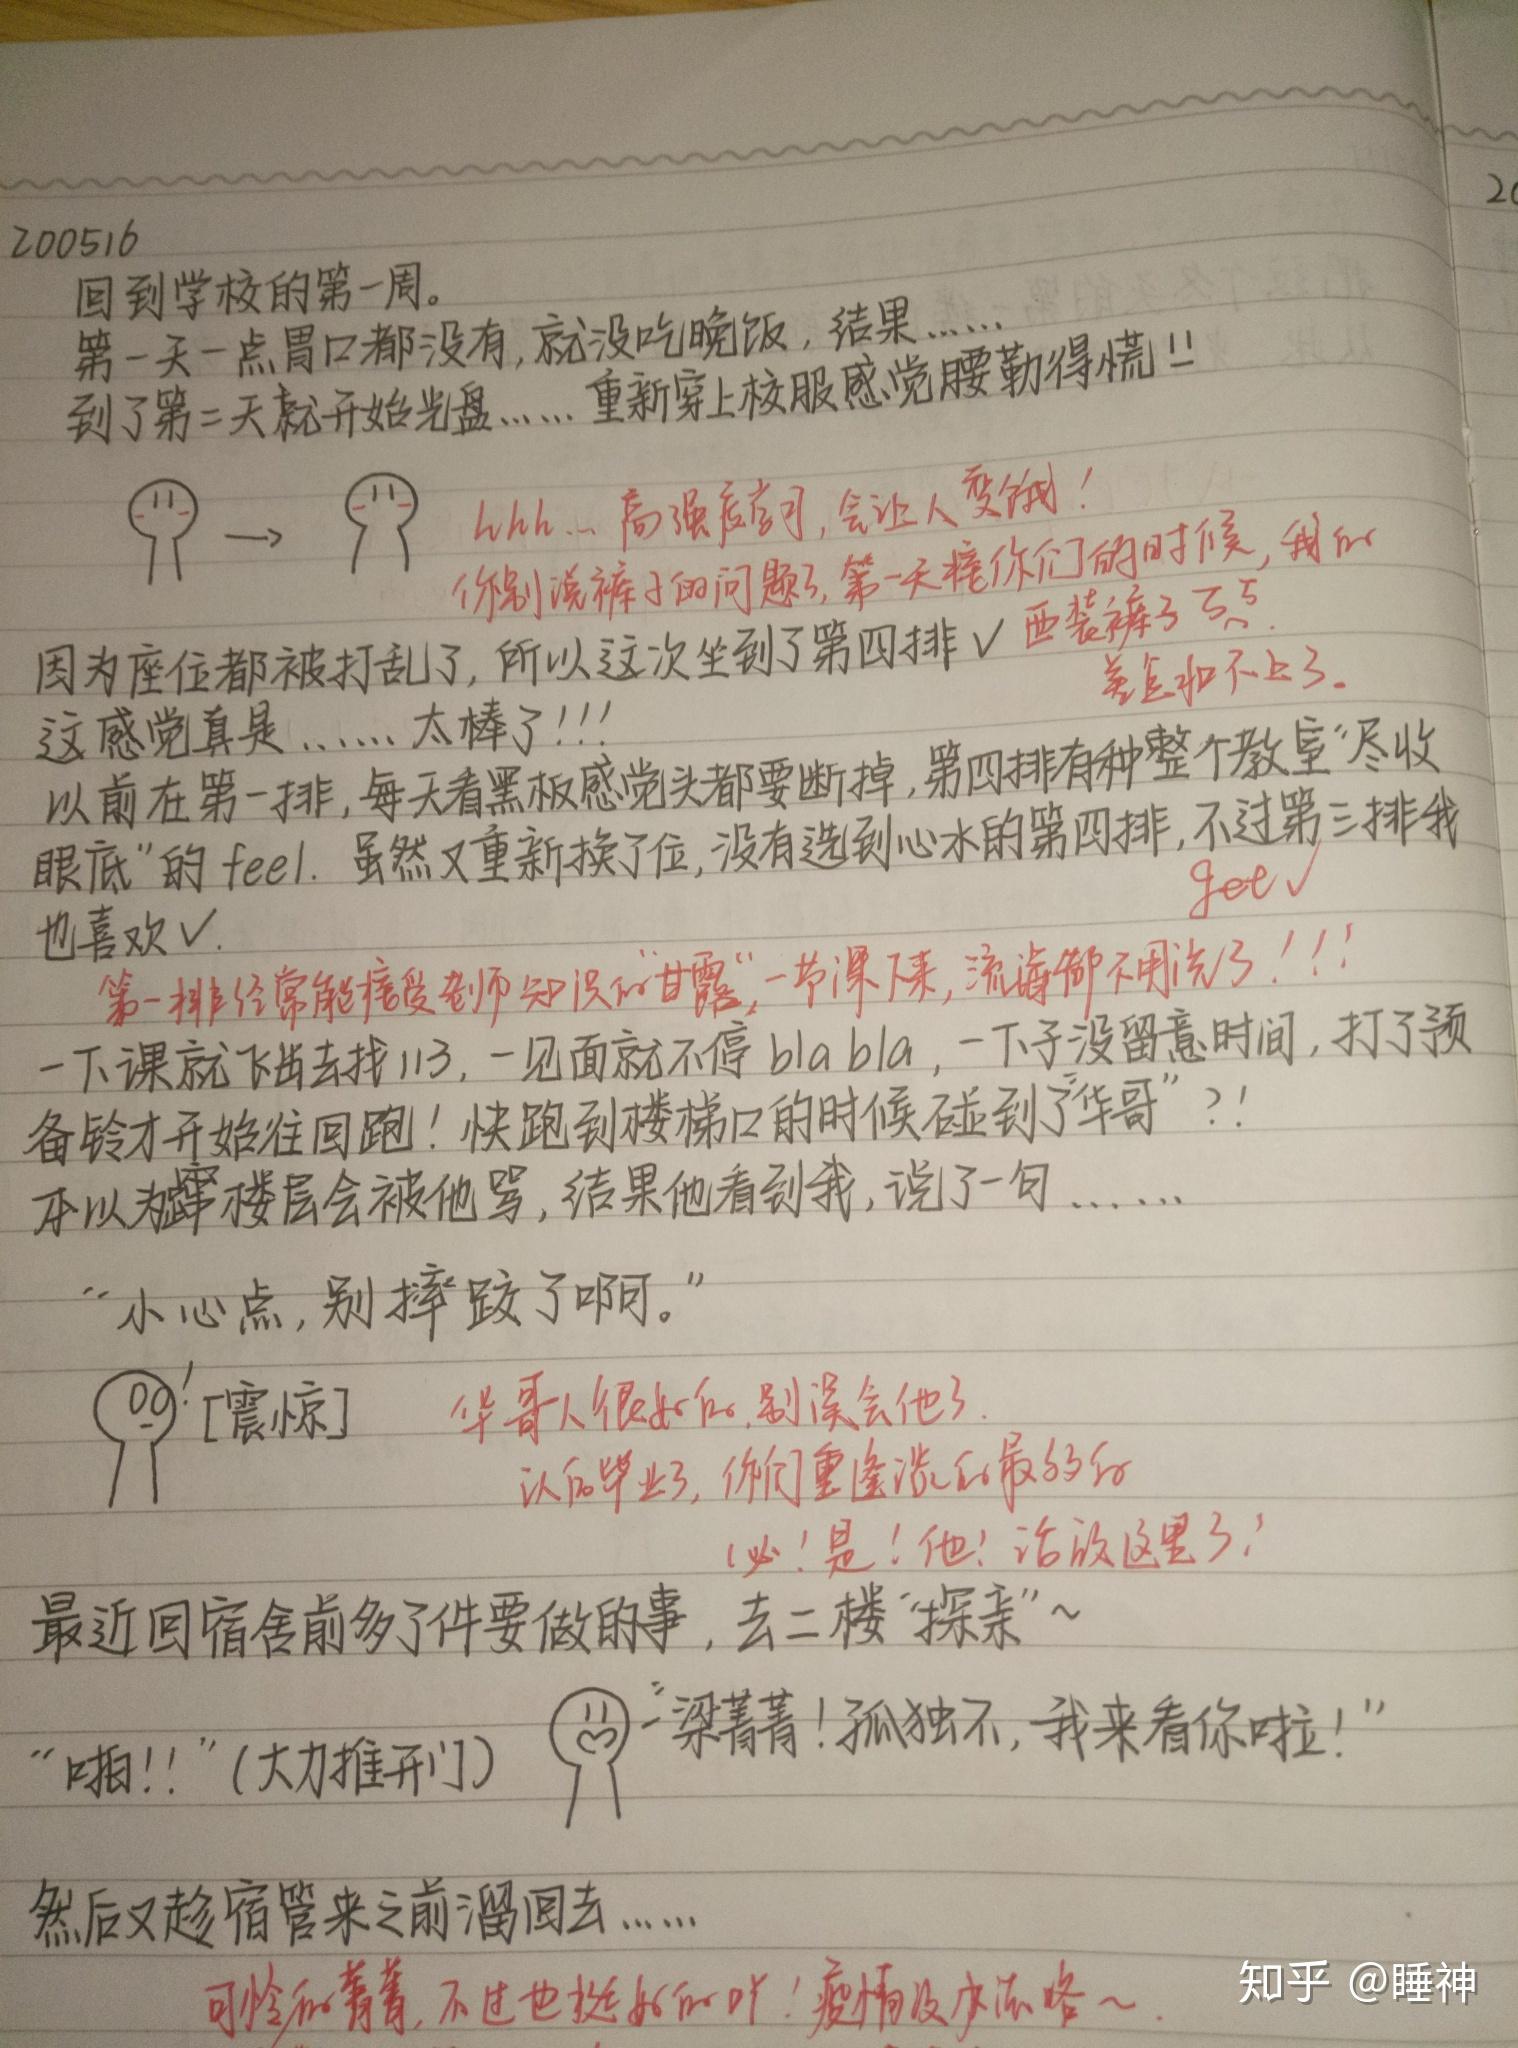 200516
回到学校的第一周。
第一天一点胃口都没有,就没吃晚饭,结果……
到了第二天就开始光盘……重新穿上校服感觉腰勒得慌!!
hhh… 高强度学习,会让人变饿!
你别说裤子的问题了,第一天接你们的时候,我的
西装裤子
差点扣不上了。
因为座位都被打乱了,所以这次坐到了第四排✓
这感觉真是……太棒了!!!
以前在第一排,每天看黑板感觉头都要断掉,第四排有种整个教室“尽收
眼底”的feel. 虽然又重新换了位,没有选到心水的第四排,不过第三排我
get✓
也喜欢✓.
第一排经常能接受老师知识的“甘露”,一节课下来,流海都不用洗了!!!
一下课就飞出去找113,一见面就不停bla bla,一下子没留意时间,打了预
备铃才开始往回跑!快跑到楼梯口的时候碰到了“华哥”?!
本以为窜楼层会被他骂,结果他看到我,说了一句……
“小心点,别摔跤了啊。”
! [震惊]
华哥人很好的,别误会他了.
以后毕业了,你们重逢说的最多的
必!是!他!话放这里了!
最近回宿舍前多了件要做的事,去二楼“探亲”~
“啪!!”(大力推开门)
“梁菁菁!孤独不,我来看你啦!”
然后又趁宿管来之前溜回去……
可怜的菁菁,不过也挺好的吖!疫情没办法咯~.
知乎 @睡神
20